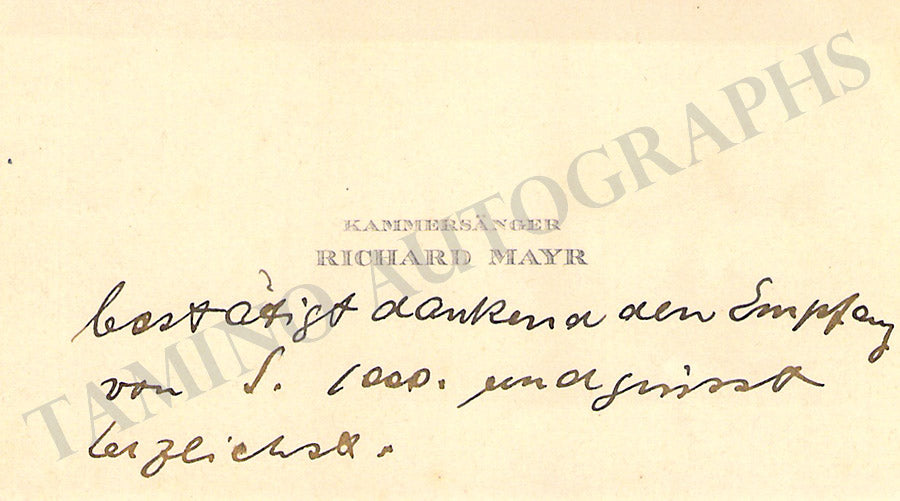 KAMMERSÄNGER
RICHARD MAYR
bestätigt dankend den Empfang
von S. 1000. und grüsst
herzlichst.
TAMINO AUTOGRAPHS